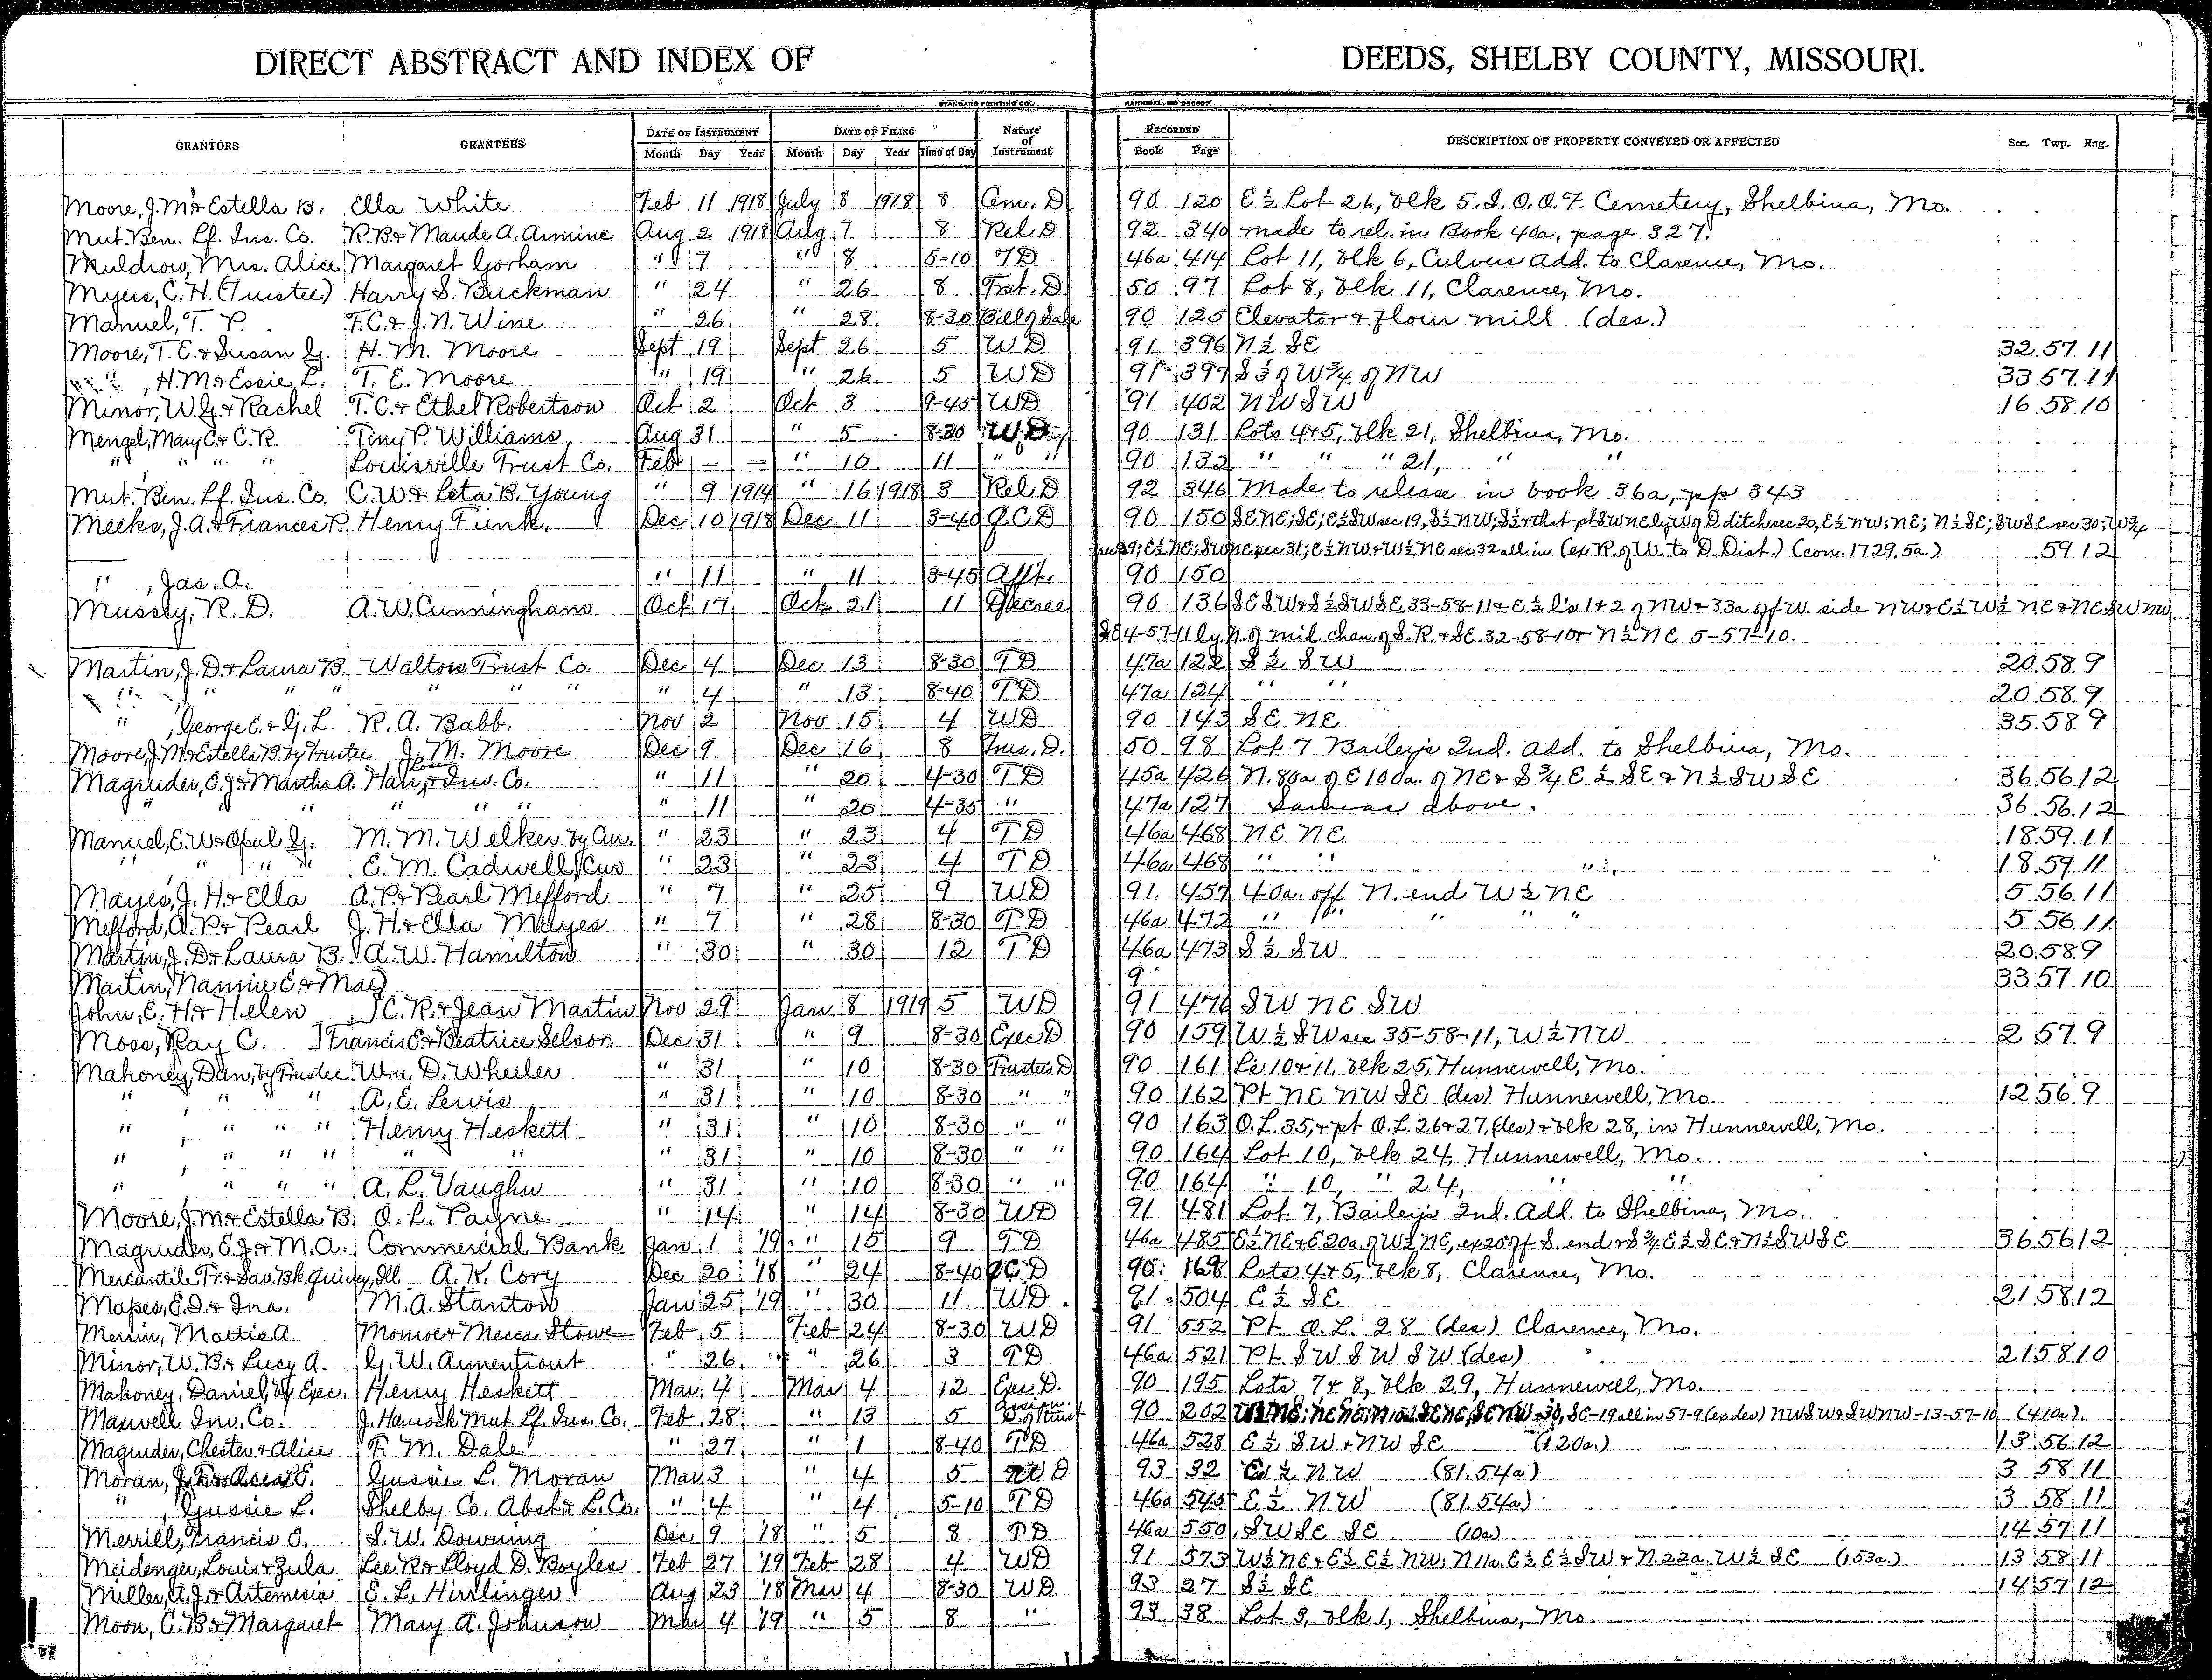 DIRECT ABSTRACT AND INDEX OF DEEDS, SHELBY COUNTY, MISSOURI.
STANDARD PRINTING CO. HANNIBAL, MO
GRANTORS GRANTEES DATE OF INSTRUMENT DATE OF FILING Nature of Instrument RECORDED DESCRIPTION OF PROPERTY CONVEYED OR AFFECTED Sec. Twp. Rng.
Month Day Year Month Day Year Time of Day Book Page
Moore, J.M. & Estella B. Ella White Feb 11 1918 July 8 1918 8 Cem. D 90 120 E ½ Lot 26, blk 5. I.O.O.F. Cemetery, Shelbina, Mo.
Mut. Ben. Lf. Ins. Co. R.B. & Maude A. Aimine Aug 2 1918 Aug 7 8 Rel D 92 340 made to rel. in Book 40a, page 327.
Muldrow, Mrs. Alice Margaret Gorham " 7 " 8 5-10 TD 46a 414 Lot 11, blk 6, Culvers Add. to Clarence, Mo.
Myers, C.H. (Trustee) Harry S. Buckman " 24 " 26 8 Trst. D 50 97 Lot 8, blk 11, Clarence, Mo.
Manuel, T. P. F.C. & J.N. Wine " 26 " 28 8-30 Bill of Sale 90 125 Elevator & flour mill (des.)
Moore, T.E. & Susan G. H. M. Moore Sept 19 Sept 26 5 WD 91 396 N ½ SE 32.57.11
" , H.M. & Essie L. T. E. Moore " 19 " 26 5 WD 91 397 S ½ of W ¾ of NW 33.57.11
Minor, W.G. & Rachel T.C. & Ethel Robertson Oct 2 Oct 3 9-45 WD 91 402 NW SW 16.58.10
Mengel, Mary C. & C.R. Tiny P. Williams Aug 31 " 5 8-30 WD 90 131 Lots 4&5, blk 21, Shelbina, Mo.
" " " " Louisville Trust Co. Feb — — " 10 11 " " 90 132 " " " 21, " "
Mut. Ben. Lf. Ins. Co. C.W. & Leta B. Young " 9 1914 " 16 1918 3 Rel D 92 346 Made to release in book 36a, pp 343
Meeks, J.A. & Frances P. Henry Funk. Dec 10 1918 Dec 11 3-40 Q.C.D 90 150 SE NE; SE; E½ SW sec 19, S½ NW; S½ & that pt SW NE ly W of D. ditch sec 20, E½ NW; NE; N½ SE; SW SE sec 30; W¾
sec 29; E½ NE; SW NE sec 31; E½ NW & W½ NE sec 32 all in (ex R. of W. to D. Dist.) (con. 1729.5a.) 59.12
" , Jas. A. " 11 " 11 3-45 Afft. 90 150
Mussey, R. D. A.W. Cunningham Oct 17 Oct 21 11 Decree 90 136 SE SW & S½ SW SE 33-58-11 & E½ L's 1 & 2 of NW & 33a off W. side NW & E½ W½ NE & NE SW NW
SE 4-57-11 ly N. of mid chan. of S.R. & SE 32-58-10 & N½ NE 5-57-10.
Martin, J.D. & Laura B. Walton Trust Co. Dec 4 Dec 13 8-30 TD 47a 122 S ½ SW 20.58.9
" " " " " " " " 4 " 13 8-40 TD 47a 124 " " 20.58.9
" , George E. & G.L. R. A. Babb. Nov 2 Nov 15 4 WD 90 143 SE NE 35.58 9
Moore, J.M. & Estella B. by Trustee J. M. Moore Dec 9 Dec 16 8 Trus. D. 50 98 Lot 7 Bailey's 2nd. Add. to Shelbina, Mo.
Magruder, E.J. & Martha A. Inv. Co. " 11 " 20 4-30 TD 45a 426 N. 80a of E 100a. of NE & S ¾ E ½ SE & N ½ SW SE 36 56.12
" " " " " " " 11 " 20 4-35 " 47a 127 Same as above. 36.56.12
Manuel, E.W. & Opal G. M. M. Welker by Cur. " 23 " 23 4 TD 46a 468 NE NE 18.59.11
" " " " E. M. Cadwell, Cur " 23 " 23 4 TD 46a 468 " " " 18.59.11
Mayes, J. H. & Ella A.P. & Pearl Mefford " 7 " 25 9 WD 91. 457 40a. off N. end W ½ NE 5 56.11
Mefford, A.P. & Pearl J. H. & Ella Mayes " 7 " 28 8-30 TD 46a 472 " " " " " 5 56.11
Martin, J.D. & Laura B. A.W. Hamilton " 30 " 30 12 TD 46a 473 S ½ SW 20 58 9
Martin, Nannie E. & Mac) 9 33 57.10
John, E. H. & Helen ]C.R. & Jean Martin Nov 29 Jan 8 1919 5 WD 91 476 SW NE SW
Moss, Ray C. ]Francis E. & Beatrice Selsor. Dec 31 " 9 8-30 Exec D 90 159 W ½ SW sec 35-58-11, W ½ NW 2 57 9
Mahoney, Dan, by Trustee Wm. D. Wheeler " 31 " 10 8-30 Trustees D 90 161 Ls 10 & 11, blk 25, Hunnewell, Mo.
" , " " A. E. Lewis " 31 " 10 8-30 " " 90 162 Pt NE NW SE (des) Hunnewell, Mo. 12 56 9
" , " " " Henry Heskett " 31 " 10 8-30 " " 90 163 O.L. 35, & pt O.L. 26 & 27, (des) & blk 28, in Hunnewell, Mo.
" , " " " " " " 31 " 10 8-30 " " 90 164 Lot 10, blk 24, Hunnewell, Mo.
" " " " A. L. Vaughn " 31 " 10 8-30 " " 90 164 " 10, " 24, " "
Moore, J.M. & Estella B. O. L. Payne " 14 " 14 8-30 WD 91 481 Lot 7, Bailey's 2nd. Add. to Shelbina, Mo.
Magruder, E.J. & M.A. Commercial Bank Jan 1 '19 " 15 9 TD 46a 485 E½ NE & E 20a. of W½ NE, ex 20 off S. end & S ¾ E ½ SE & N½ SW SE 36.56.12
Mercantile Tr. & Sav. Bk. Quincy, Ill. A. K. Cory Dec 20 '18 " 24 8-40 QCD 90 168 Lots 4&5, blk 8, Clarence, Mo.
Mapes, E.D. & Ina. M.A. Stanton Jan 25 '19 " 30 11 WD 91 504 E ½ SE 21 58 12
Merrin, Mattie A. Monroe & Mecca Stowe Feb 5 Feb 24 8-30 WD 91 552 Pt. O.L. 28 (des) Clarence, Mo.
Minor, W.B. & Lucy A. G.W. Armentrout " 26 " 26 3 TD 46a 521 Pt. SW SW SW (des) 21 58 10
Mahoney, Daniel, by Exec. Henry Heskett Mar 4 Mar 4 12 Exec D. 90 195 Lots 7 & 8, blk 29, Hunnewell, Mo.
Maxwell Inv. Co. J. Hancock Mut. Lf. Ins. Co. Feb 28 " 13 5 Assign. D. of trust 90 202 SE-19 all in 57-9 (ex des) NW SW & SW NW-13-57-10 (410a).
Magruder, Chester & Alice F. M. Dale " 27 " 1 8-40 TD 46a 528 E ½ SW & NW SE (120a.) 13 56.12
Moran, Gussie L. Moran Mar 3 " 4 5 WD 93 32 E ½ NW (81.54a) 3 58.11
" , Gussie L. Shelby Co. Abst. & L. Co. " 4 " 4 5-10 TD 46a 545 E ½ NW (81.54a) 3 58 11
Merrill, Francis E. S.W. Downing Dec 9 '18 " 5 8 TD 46a 550 SW SE SE (10a) 14 57 11
Meidenger, Louis & Zula Lee R. & Lloyd D. Boyles Feb 27 '19 Feb 28 4 WD 91 573 W½ NE & E½ E½ NW; N 11a. E½ E½ SW & N. 22a. W½ SE (153a.) 13 58 11
Miller, A.J. & Artemisia E. L. Hirrlinger Aug 23 '18 Mar 4 8-30 WD 93 27 S½ SE 14 57 12
Moon, C.B. & Margaret Mary A. Johnson Mar 4 '19 " 5 8 " 93 38 Lot 3, blk 1, Shelbina, Mo